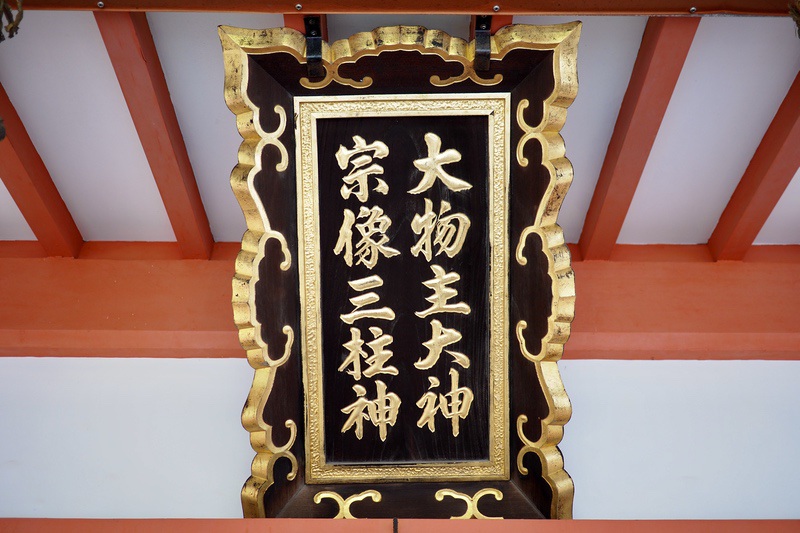 大物主大神
宗像三柱神